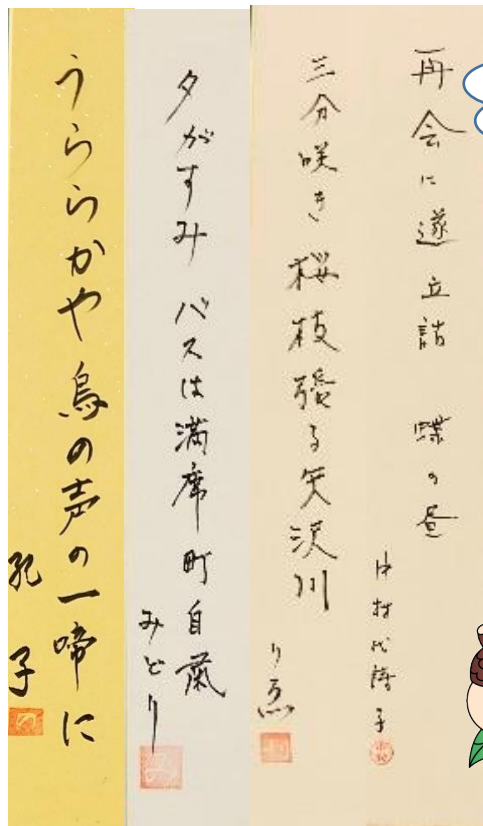 再会に遂立話 蝶の昼
中村
三分咲き桜枝張る矢沢川
り恵
夕がすみ バスは満席 町自
みどり
うららかや鳥の声の一啼に
子